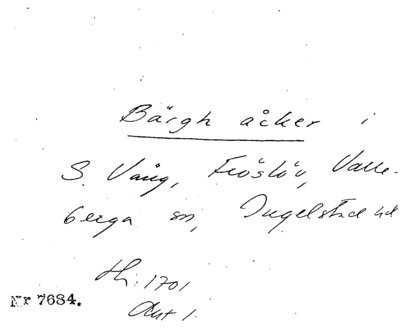 Bärgh åcker i
S. Vång, Fröslöv, Valle-
berga sn, Ingelstad hd
1701
Akt 1
Nr 7684.